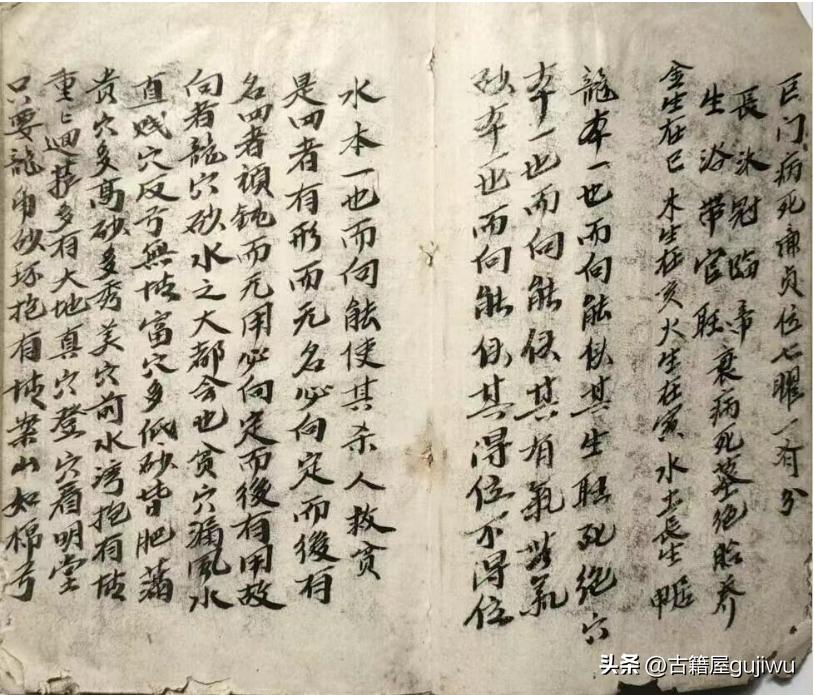 巨门病死廉贞位七曜一有分
長沐冠臨帝衰病死墓绝胎养
生浴带官旺
金生在巳木生在亥火生在寅水土長生申居
龍本一也而向能使其生旺死绝穴
本一也而向能使其有氣氣
砂本一也而向能使其得位不得位
水本一也而向能使其杀人救贫
是四者有形而无名必向定而後有
名四者頑鈍而无用必向定而後有用故
向者龍穴砂水之大都会也贫穴漏風水
直贱穴反弓無富穴多低砂皆肥满
贵穴多高砂多秀美穴前水湾抱有
重〻迴多有大地真穴登穴看明堂
只要龍砂环抱有案山如棉弓
头条 @古籍屋gujiwu